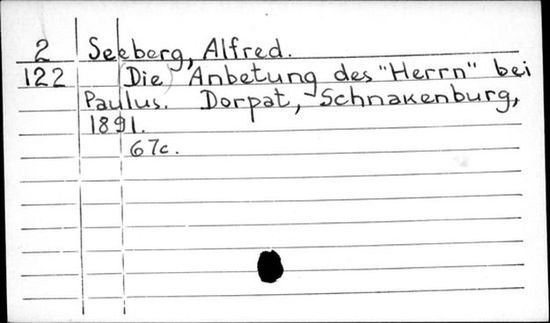 2 Seeberg, Alfred.
122 Die Anbetung des "Herrn" bei
Paulus. Dorpat, Schnakenburg,
1891.
67c.